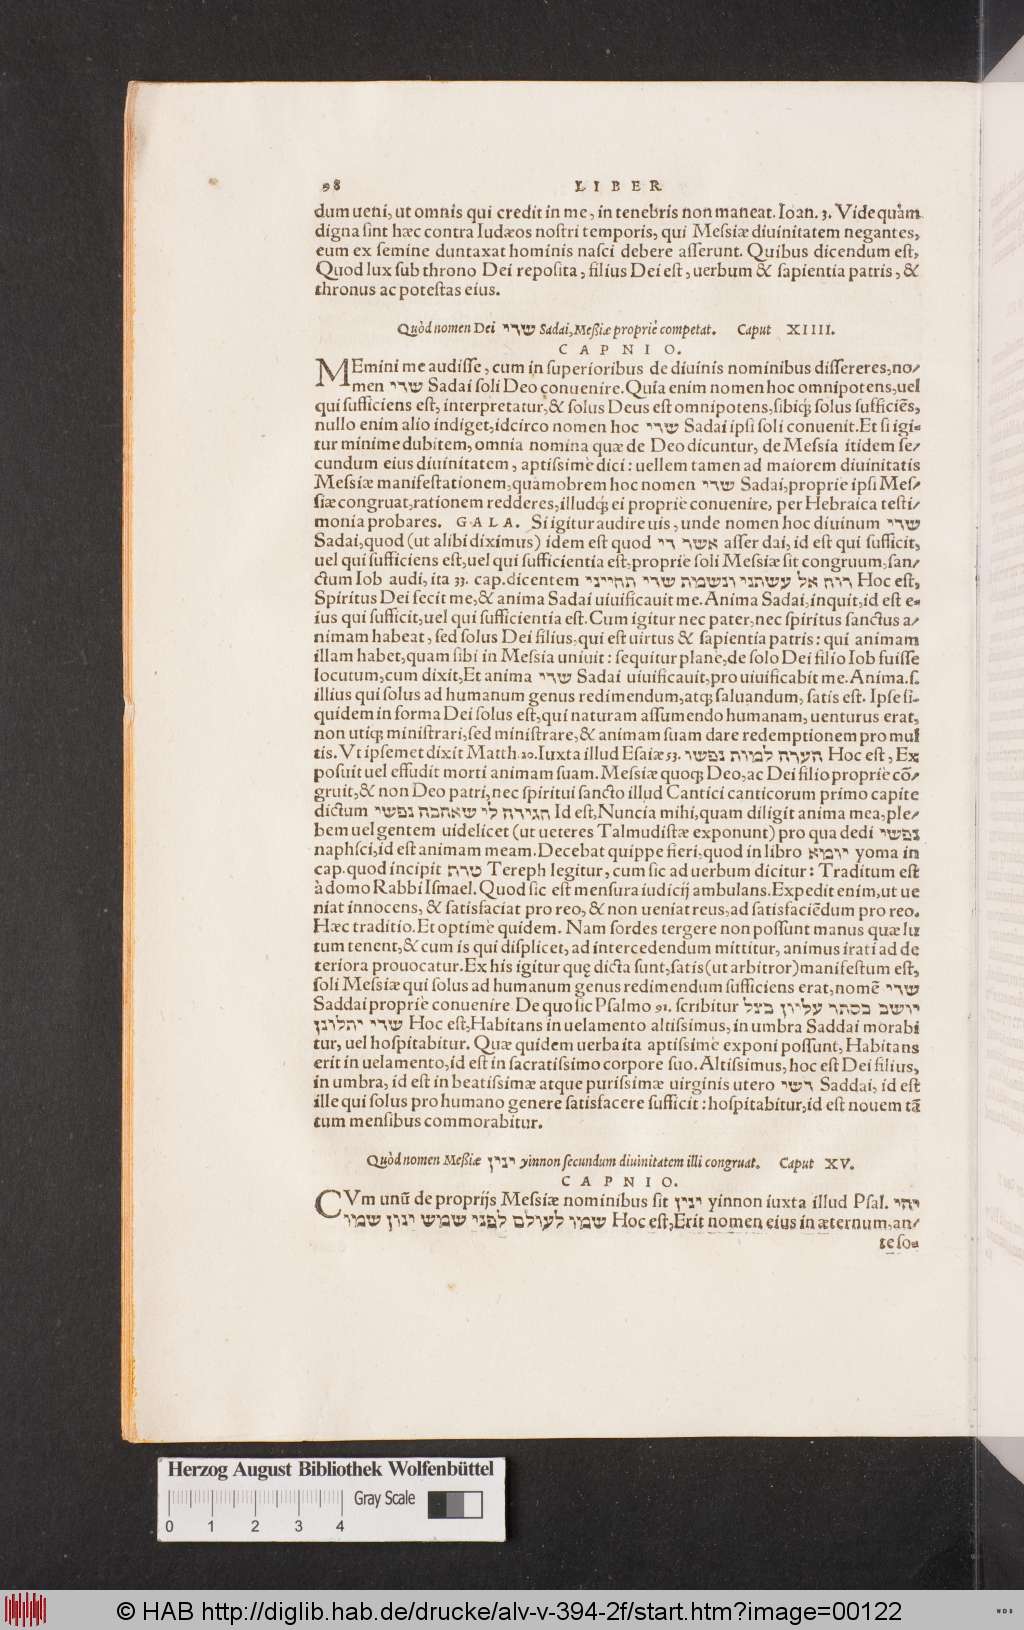 98 LIBER
dum ueni, ut omnis qui credit in me, in tenebris non maneat. Ioan. 3. Vide quàm
digna sint hæc contra Iudæos nostri temporis, qui Messiæ diuinitatem negantes,
eum ex semine duntaxat hominis nasci debere asserunt. Quibus dicendum est,
Quod lux sub throno Dei reposita, filius Dei est, uerbum & sapientia patris, &
thronus ac potestas eius.
Quòd nomen Dei שדי Sadai, Meßiæ propriè competat. Caput XIIII.
CAPNIO.
MEmini me audisse, cum in superioribus de diuinis nominibus dissereres, no/
men שדי Sadai soli Deo conuenire. Quia enim nomen hoc omnipotens, uel
qui sufficiens est, interpretatur, & solus Deus est omnipotens, sibiq; solus sufficiēs,
nullo enim alio indiget, idcirco nomen hoc שדי Sadai ipsi soli conuenit. Et si igi-
tur minime dubitem, omnia nomina quæ de Deo dicuntur, de Messia itidem se/
cundum eius diuinitatem, aptissimè dici: uellem tamen ad maiorem diuinitatis
Messiæ manifestationem, quamobrem hoc nomen שדי Sadai, proprie ipsi Mes/
siæ congruat, rationem redderes, illudq; ei propriè conuenire, per Hebraica testi/
monia probares. GALA. Si igitur audire uis, unde nomen hoc diuinum שדי
Sadai, quod (ut alibi diximus) idem est quod אשר די asser dai, id est qui sufficit,
uel qui sufficiens est, uel qui sufficientia est, propriè soli Messiæ sit congruum, san/
ctum Iob audi, ita 33. cap. dicentem רוח אל עשתני ונשמת שדי תחייני Hoc est,
Spiritus Dei fecit me, & anima Sadai uiuificauit me. Anima Sadai, inquit, id est e-
ius qui sufficit, uel qui sufficientia est. Cum igitur nec pater, nec spiritus sanctus a/
nimam habeat, sed solus Dei filius, qui est uirtus & sapientia patris: qui animam
illam habet, quam sibi in Messia uniuit: sequitur planè, de solo Dei filio Iob fuisse
locutum, cum dixit, Et anima שדי Sadai uiuificauit, pro uiuificabit me. Anima .s.
illius qui solus ad humanum genus redimendum, atq; saluandum, satis est. Ipse si-
quidem in forma Dei solus est, qui naturam assumendo humanam, uenturus erat,
non utiq; ministrari, sed ministrare, & animam suam dare redemptionem pro mul
tis. Vt ipsemet dixit Matth. 20. Iuxta illud Esaiæ 53. הערה למות נפשי Hoc est, Ex
posuit uel effudit morti animam suam. Messiæ quoq; Deo, ac Dei filio propriè cō/
gruit, & non Deo patri, nec spiritui sancto illud Cantici canticorum primo capite
dictum הגידה לי שאהבה נפשי Id est, Nuncia mihi, quam diligit anima mea, ple/
bem uel gentem uidelicet (ut ueteres Talmudistæ exponunt) pro qua dedi נפשי
naphsci, id est animam meam. Decebat quippe fieri, quod in libro יומא yoma in
cap. quod incipit טרף Tereph legitur, cum sic ad uerbum dicitur: Traditum est
à domo Rabbi Ismael. Quod sic est mensura iudicij ambulans. Expedit enim, ut ue
niat innocens, & satisfaciat pro reo, & non ueniat reus, ad satisfaciēdum pro reo.
Hæc traditio. Et optimè quidem. Nam sordes tergere non possunt manus quæ lu
tum tenent, & cum is qui displicet, ad intercedendum mittitur, animus irati ad de
teriora prouocatur. Ex his igitur quę dicta sunt, satis (ut arbitror) manifestum est,
soli Messiæ qui solus ad humanum genus redimendum sufficiens erat, nomē שדי
Saddai propriè conuenire. De quo sic Psalmo 91. scribitur יושב בסתר עליון בצל
שדי יתלונן Hoc est, Habitans in uelamento altissimus, in umbra Saddai morabi
tur, uel hospitabitur. Quæ quidem uerba ita aptissimè exponi possunt, Habitans
erit in uelamento, id est in sacratissimo corpore suo. Altissimus, hoc est Dei filius,
in umbra, id est in beatissimæ atque purissimæ uirginis utero שדי Saddai, id est
ille qui solus pro humano genere satisfacere sufficit: hospitabitur, id est nouem tā
tum mensibus commorabitur.
Quòd nomen Meßiæ ינין yinnon secundum diuinitatem illi congruat. Caput XV.
CAPNIO.
CVm unū de proprijs Messiæ nominibus sit ינין yinnon iuxta illud Psal. יהי
שמו לעולם לפני שמש ינון שמו Hoc est, Erit nomen eius in æternum, an/
te so-
Herzog August Bibliothek Wolfenbüttel
Gray Scale
0 1 2 3 4
© HAB http://diglib.hab.de/drucke/alv-v-394-2f/start.htm?image=00122